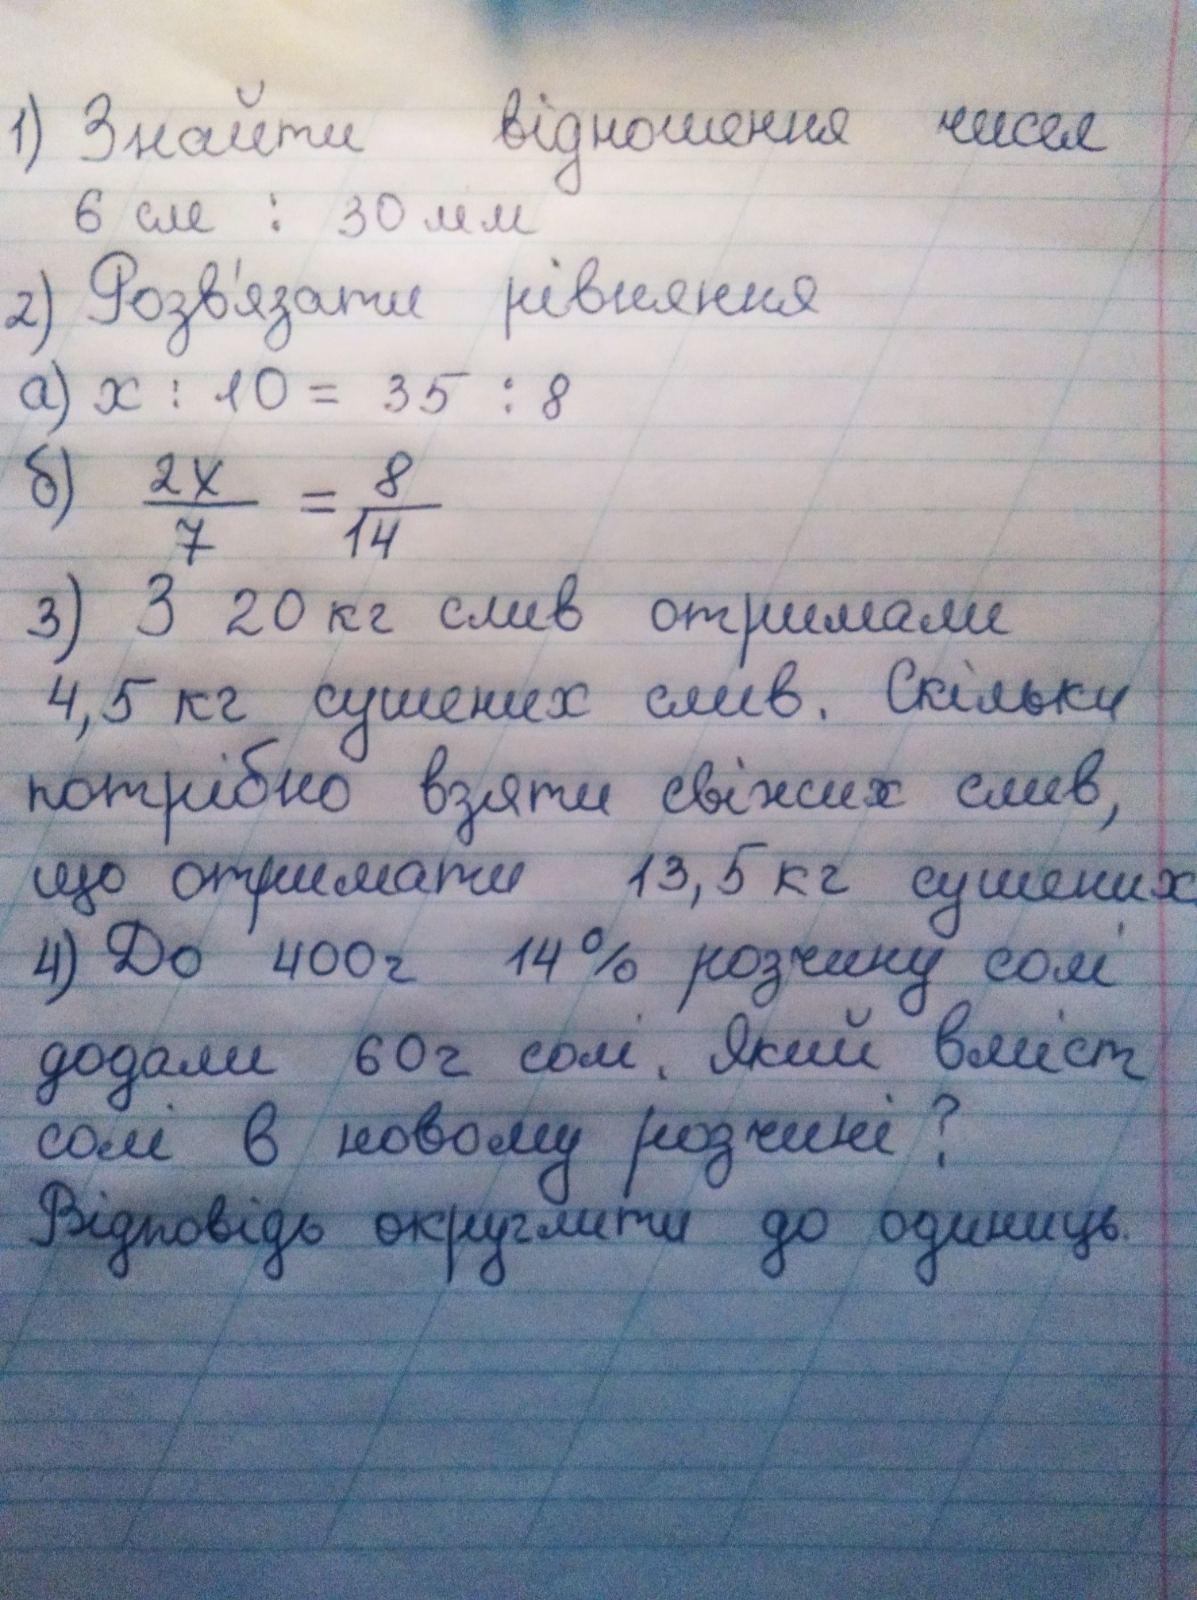 1) Знайти відношення чисел
6 см : 30 мм
2) Розв'язати рівняння
а) x : 10 = 35 : 8
б) 2x/7 = 8/14
3) З 20 кг слив отримали
4,5 кг сушених слив. Скільки
потрібно взяти свіжих слив,
що отримати 13,5 кг сушених
4) До 400г 14% розчину солі
додали 60г солі. Який вміст
солі в новому розчині?
Відповідь округлити до одиниць.